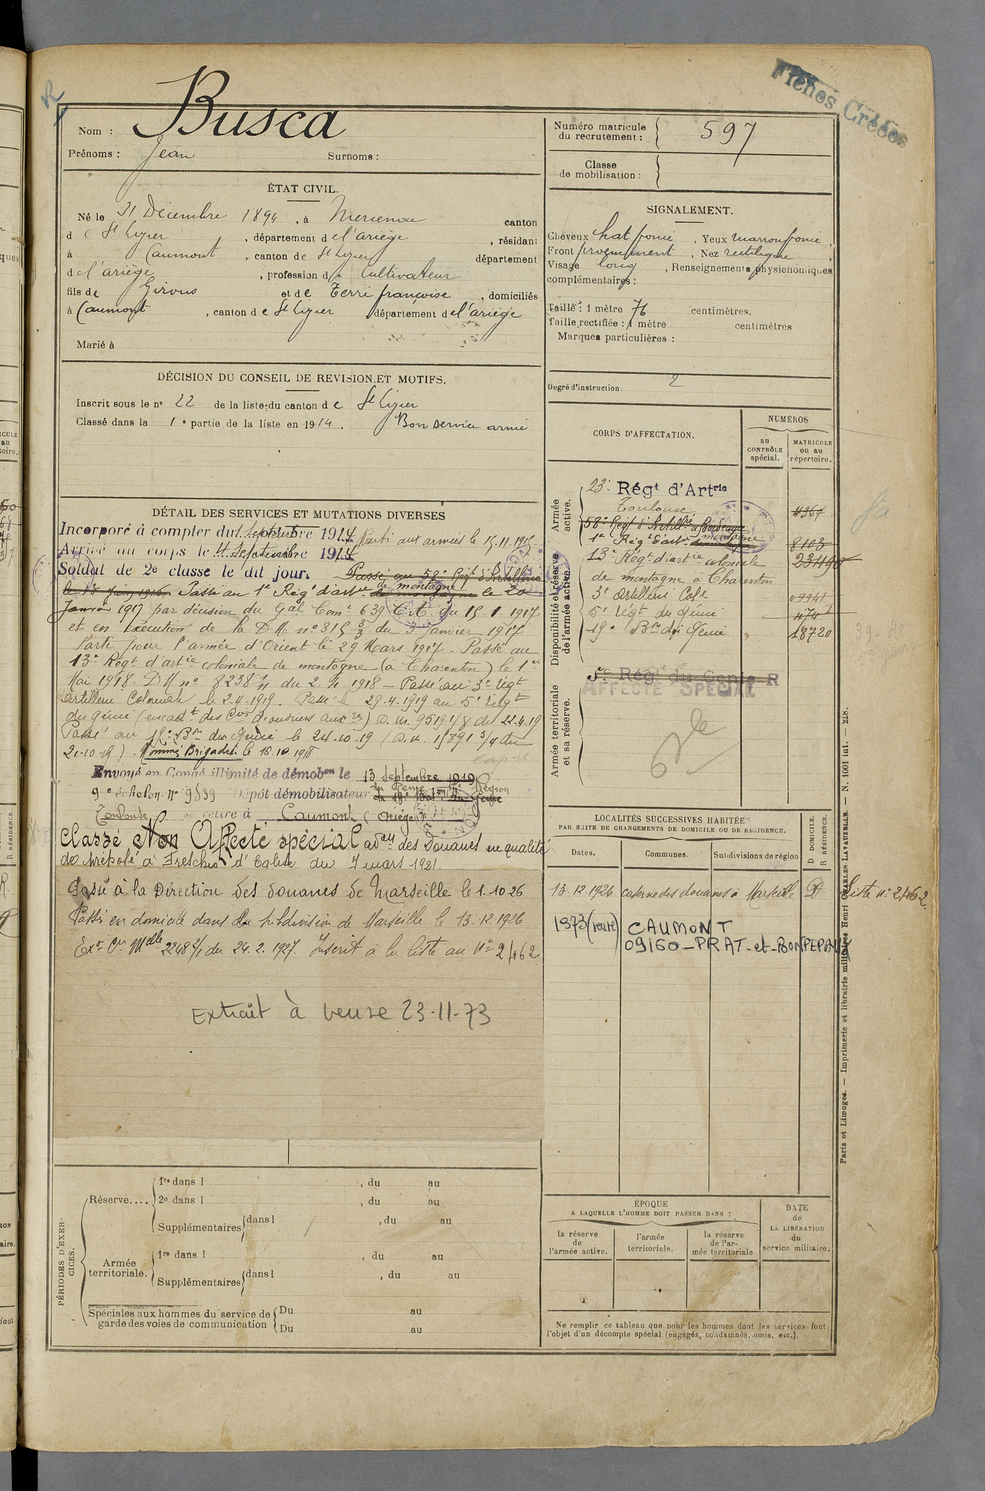 Fiches Créées
R
Nom : Busca
Prénoms : Jean Surnoms :
Numéro matricule du recrutement : 597
Classe de mobilisation :
ÉTAT CIVIL.
Né le 31 Décembre 1894, à Mercenac canton
d e St Lizier, département d e l'ariège, résidant
à Caumont, canton de St Lizier département
d e l'ariège, profession d e Cultivateur
fils de Girons et de Terré françoise, domiciliés
à Caumont, canton d e St Lizier département d e l'ariège
Marié à
SIGNALEMENT.
Cheveux chat foncé, Yeux marron foncé,
Front proéminent, Nez rectiligne
Visage long, Renseignements physionomiques
complémentaires :
Taille : 1 mètre 76 centimètres.
Taille rectifiée : 1 mètre centimètres
Marques particulières :
Degré d'instruction : 2
DÉCISION DU CONSEIL DE REVISION ET MOTIFS.
Inscrit sous le n° 22 de la liste du canton d e St Lizier
Classé dans la 1e partie de la liste en 1914. Bon service armé
DÉTAIL DES SERVICES ET MUTATIONS DIVERSES
Incorporé à compter du 1 Septembre 1914 Parti aux armées le 15.11.1915
Arrivé au corps le 4 Septembre 1914
Soldat de 2e classe le dit jour. Passé au 58e Régt d'Artillerie
le 18 juin 1916 Passé au 1e Rég d'artie de montagne le 20
Janvier 1917 par décision du Gal Comt 639 Et. du 15 1 1917
et en exécution de la DM n° 315 3/3 du 3 janvier 1917
Parti pour l'armée d'Orient le 29 Mars 1917. Passé au
13e Régt d'artie coloniale de montagne (à Charenton) le 1er
Mai 1918. DM n° 8238 du 2 1918 - Passé au 3e Régt
Artillerie Coloniale le 2.4.1919. Passé le 29.4.1919 au 5e Régt
du génie
Passé au 19e Bon du Génie le 24.10.19 (D.M. 15891 3/4 du
21-10-19). Nommé Brigadier le 15.10 1918
Envoyé en Congé illimité de démobon le 13 Septembre 1919
9e échelon N° 9539 Dépôt démobilisateur du 19e Bataillon du Génie
Toulouse se retire à Caumont (Ariège)
Classé Non Affecté spécial adon des Douanes en qualité
de préposé à Freschu d'Eglise du 7 mars 1921
Passé à la Direction des douanes de Marseille le 1.10.26
Passé en domicile dans la subdivision de Marseille le 13.12.1926
Ext Cre Melle 2248 3/1 du 24.2.1927. Inscrit à la liste au N° 2462
Extrait à veuve 23-11-73
CORPS D'AFFECTATION.
NUMÉROS
au CONTRÔLE spécial.
MATRICULE ou au répertoire.
Armée active.
23e Régt d'Artrie
Toulouse 4367
58e Régt d'Artillie à Bordeaux
1e Rég d'art de montagne 8103
Disponibilité et réserve de l'armée active.
13e Régt d'artie coloniale 23490
de montagne à Charenton
3e artillerie Cole 09941
5e Régt du génie 474
19e Bon du Génie 18720
Armée territoriale et sa réserve.
5e Rég du Génie R
AFFECTÉ SPÉCIAL
LOCALITÉS SUCCESSIVES HABITÉES
PAR SUITE DE CHANGEMENTS DE DOMICILE OU DE RÉSIDENCE.
Dates. Communes. Subdivisions de région D DOMICILE. R RÉSIDENCE.
13.12.1926 caserne des douanes à Marseille D Liste n° 2462
1973 (veuve) CAUMONT
09160-PRAT-et-BONREPAUX
PÉRIODES D'EXERCICES.
Réserve.... 1re dans l , du au
2e dans l , du au
Supplémentaires dans l , du au
Armée territoriale. 1re dans l , du au
Supplémentaires dans l , du au
Spéciales aux hommes du service de garde des voies de communication Du au
Du au
ÉPOQUE
A LAQUELLE L'HOMME DOIT PASSER DANS :
la réserve de l'armée active.
l'armée territoriale.
la réserve de l'armée territoriale
DATE de LA LIBÉRATION du service militaire.
Ne remplir ce tableau que pour les hommes dont les services font
l'objet d'un décompte spécial (engagés, condamnés, omis, etc.).
Paris et Limoges. — Imprimerie et librairie militaires Henri CHARLES-LAVAUZELLE. — N. 1001 int. — 218.